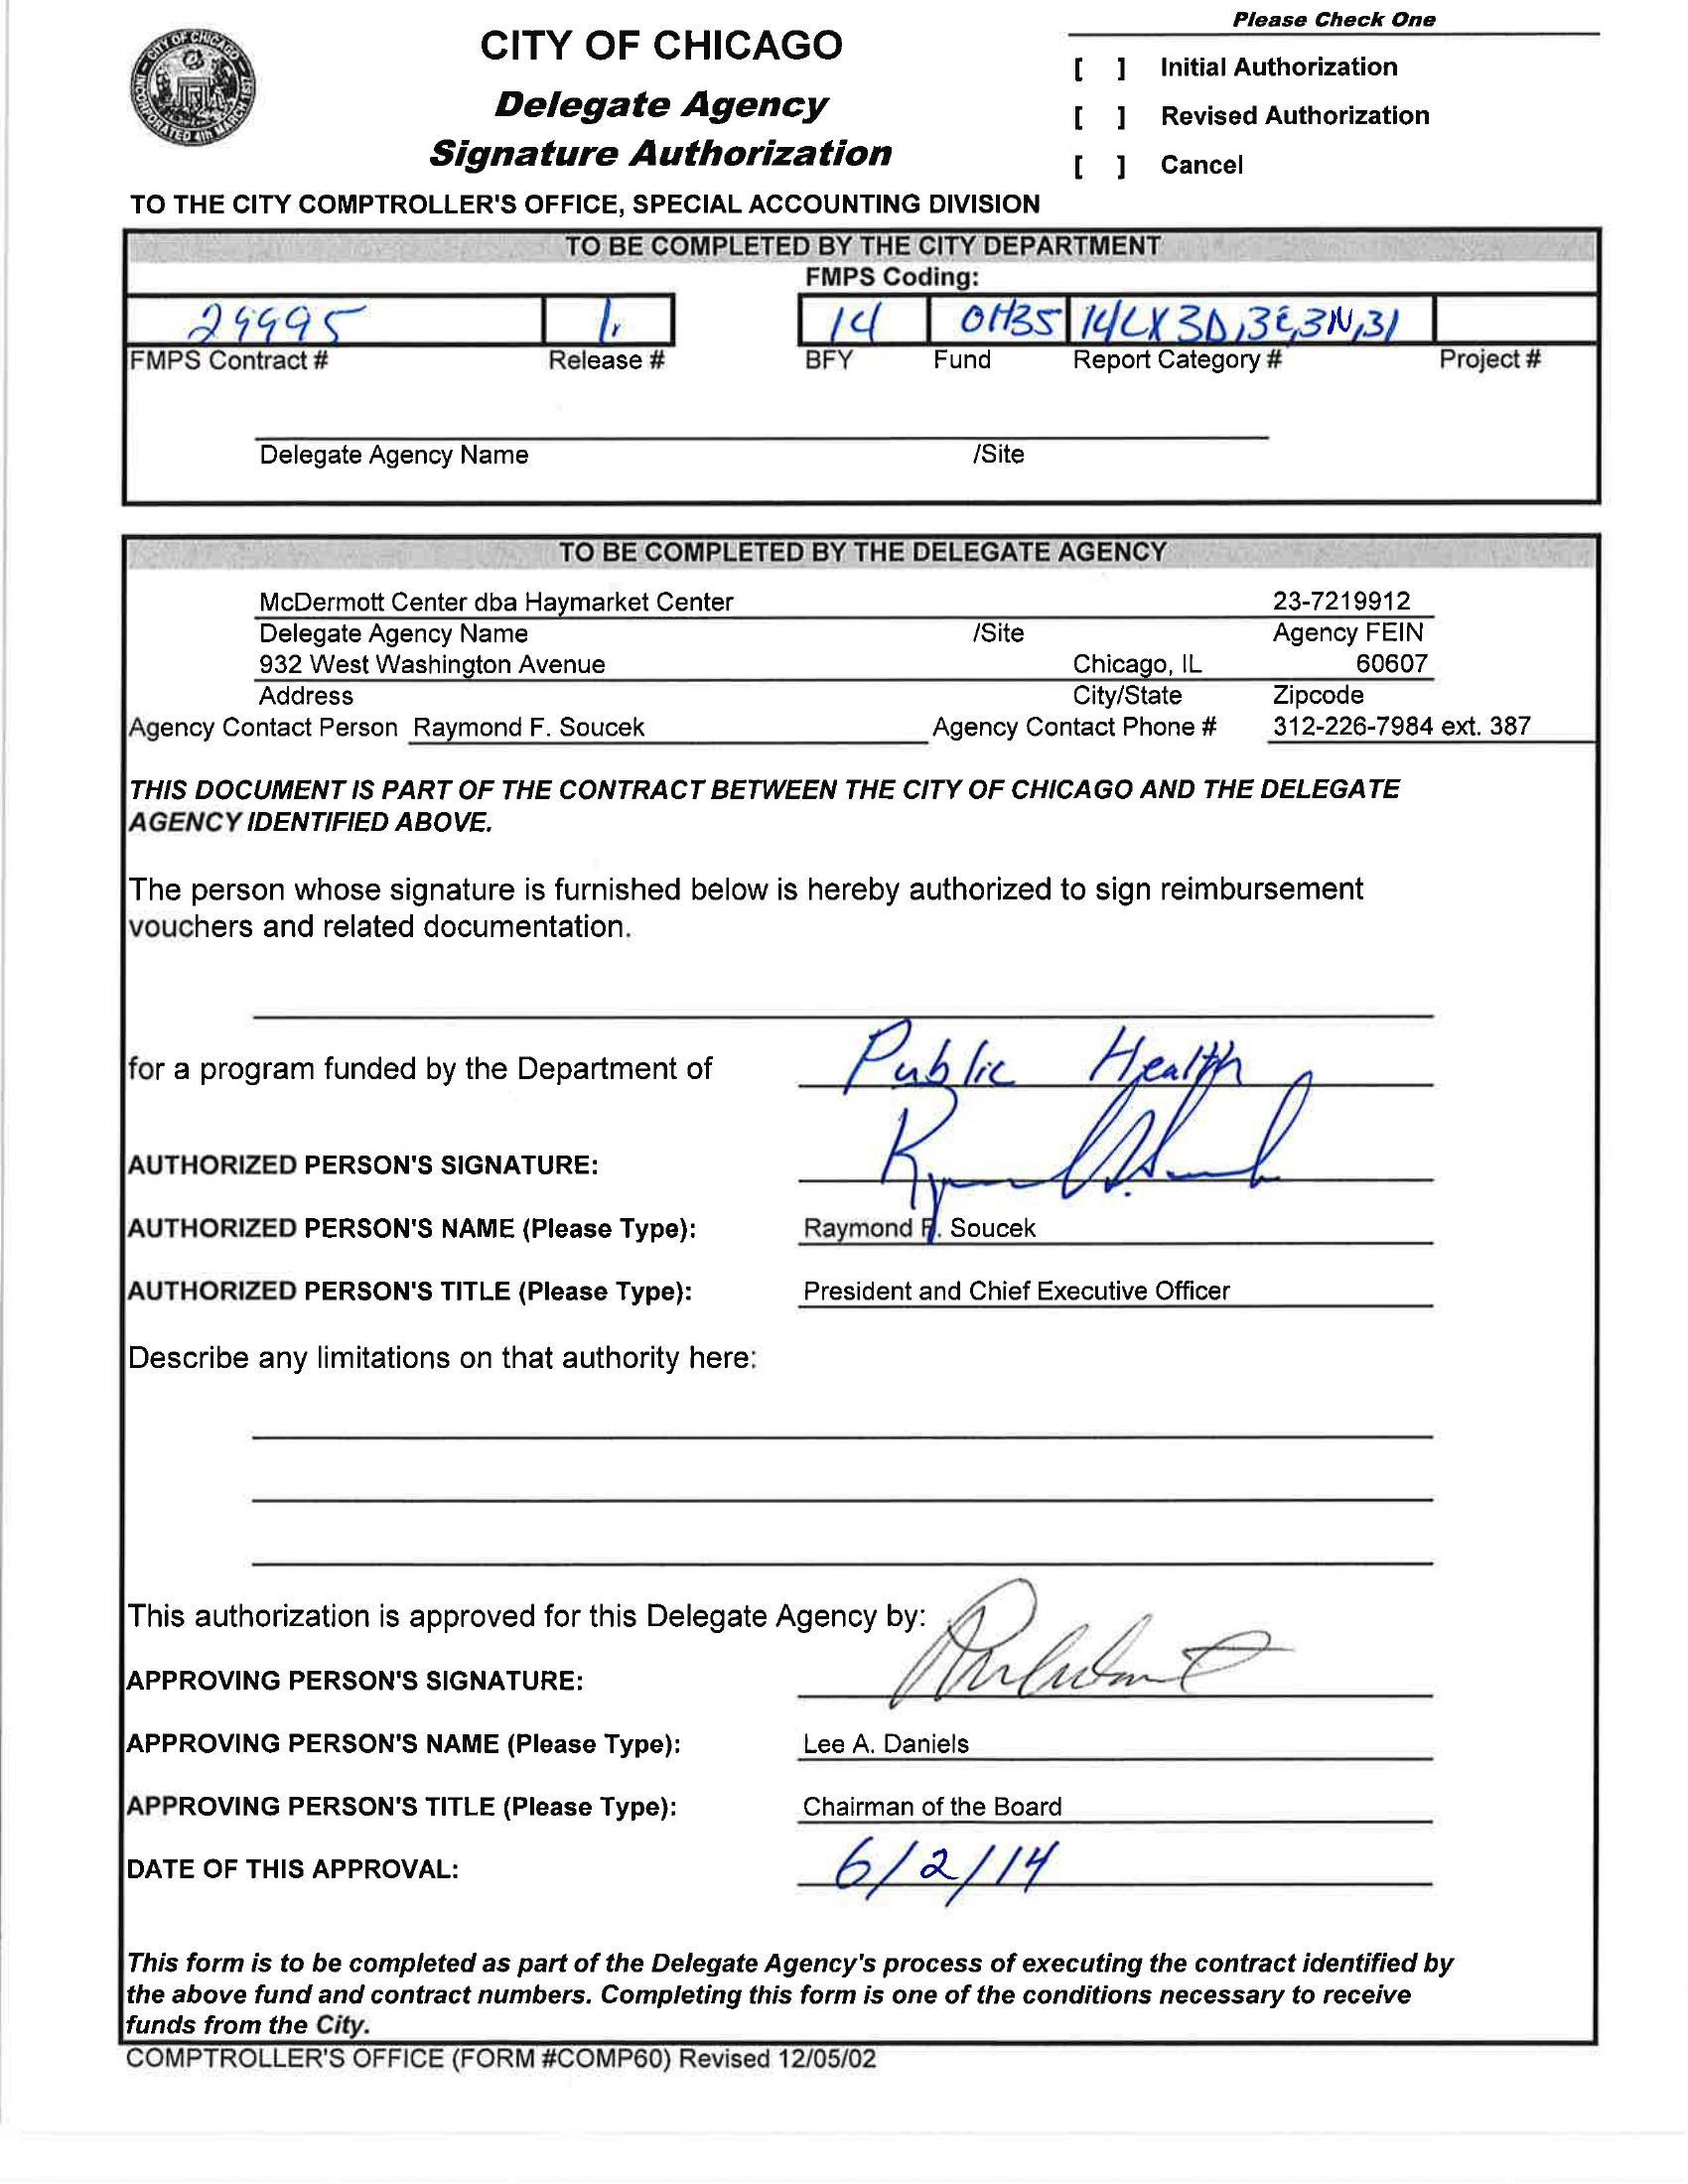 Please Check One
CITY OF CHICAGO
[ ] Initial Authorization
Delegate Agency
[ ] Revised Authorization
Signature Authorization
[ ] Cancel
CITY OF CHICAGO INCORPORATED 4th MARCH 1837
TO THE CITY COMPTROLLER'S OFFICE, SPECIAL ACCOUNTING DIVISION
TO BE COMPLETED BY THE CITY DEPARTMENT
FMPS Coding:
29995 1. 14 0H35 14LX3D,3E,3N,31
FMPS Contract # Release # BFY Fund Report Category # Project #
Delegate Agency Name /Site
TO BE COMPLETED BY THE DELEGATE AGENCY
McDermott Center dba Haymarket Center 23-7219912
Delegate Agency Name /Site Agency FEIN
932 West Washington Avenue Chicago, IL 60607
Address City/State Zipcode
Agency Contact Person Raymond F. Soucek Agency Contact Phone # 312-226-7984 ext. 387
THIS DOCUMENT IS PART OF THE CONTRACT BETWEEN THE CITY OF CHICAGO AND THE DELEGATE
AGENCY IDENTIFIED ABOVE.
The person whose signature is furnished below is hereby authorized to sign reimbursement
vouchers and related documentation.
for a program funded by the Department of Public Health
AUTHORIZED PERSON'S SIGNATURE:
AUTHORIZED PERSON'S NAME (Please Type): Raymond F. Soucek
AUTHORIZED PERSON'S TITLE (Please Type): President and Chief Executive Officer
Describe any limitations on that authority here:
This authorization is approved for this Delegate Agency by:
APPROVING PERSON'S SIGNATURE:
APPROVING PERSON'S NAME (Please Type): Lee A. Daniels
APPROVING PERSON'S TITLE (Please Type): Chairman of the Board
DATE OF THIS APPROVAL: 6/2/14
This form is to be completed as part of the Delegate Agency's process of executing the contract identified by
the above fund and contract numbers. Completing this form is one of the conditions necessary to receive
funds from the City.
COMPTROLLER'S OFFICE (FORM #COMP60) Revised 12/05/02